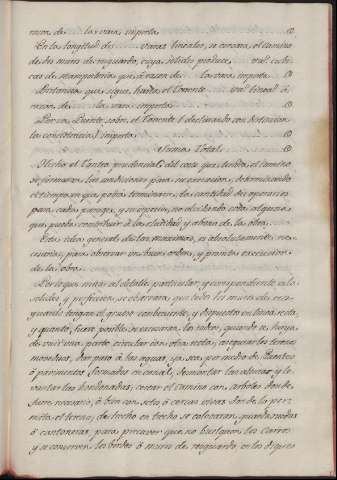 razon de la vara, importa
En la longitud de varas lineales, se cerrará el camino
de dos muros de resguardo, cuya solidez produce varas cubi-
cas de mamposteria que á razon de la vara importa
Distancia que sigue hasta el Torrente varas lineales á
razon de la vara importa
Por un Puente sobre el Torrente (declarando con distincion
la consistencia) importa
Suma Total
Hecho el Tanteo prudencial del coste que tendrá el camino
se formaran las condiciones para su execucion, determinando
el tiempo en que podrá terminarse, la cantidad de operarios
para cada parage, y su especie, no olvidando cosa alguna
que pueda contribuir á la claridad y abono de la obra.
Esta idea general de las maximas, es absolutamente ne-
cesaria, para observar un buen orden, y pronta execucion
de la obra.
Por lo que mira al detalle particular, y correspondiente á la
solidez y perfeccion, se observará que todos los muros de res-
guardo tengan el grueso conveniente, y dispuestos en linea recta,
y quanto fuere posible se escusaran los codos, quando se haya
de unir una parte circular con otra recta, asegurar los terrenos
movedizos, dar paso á las aguas, ya sea por medio de Puentes
ó pavimentos formados en canal, desmontar las alturas y le-
vantar las hondonadas, cercar el camino con arboles donde
fuere necesario, ó bien con setos ó cercas vivas donde lo per-
mita el terreno; de trecho en trecho se colocaran guarda ruedas
ó cantoneras para precaver que no huelguen los carros
y se conserven los bordes ó muros de resguardo, en los diques